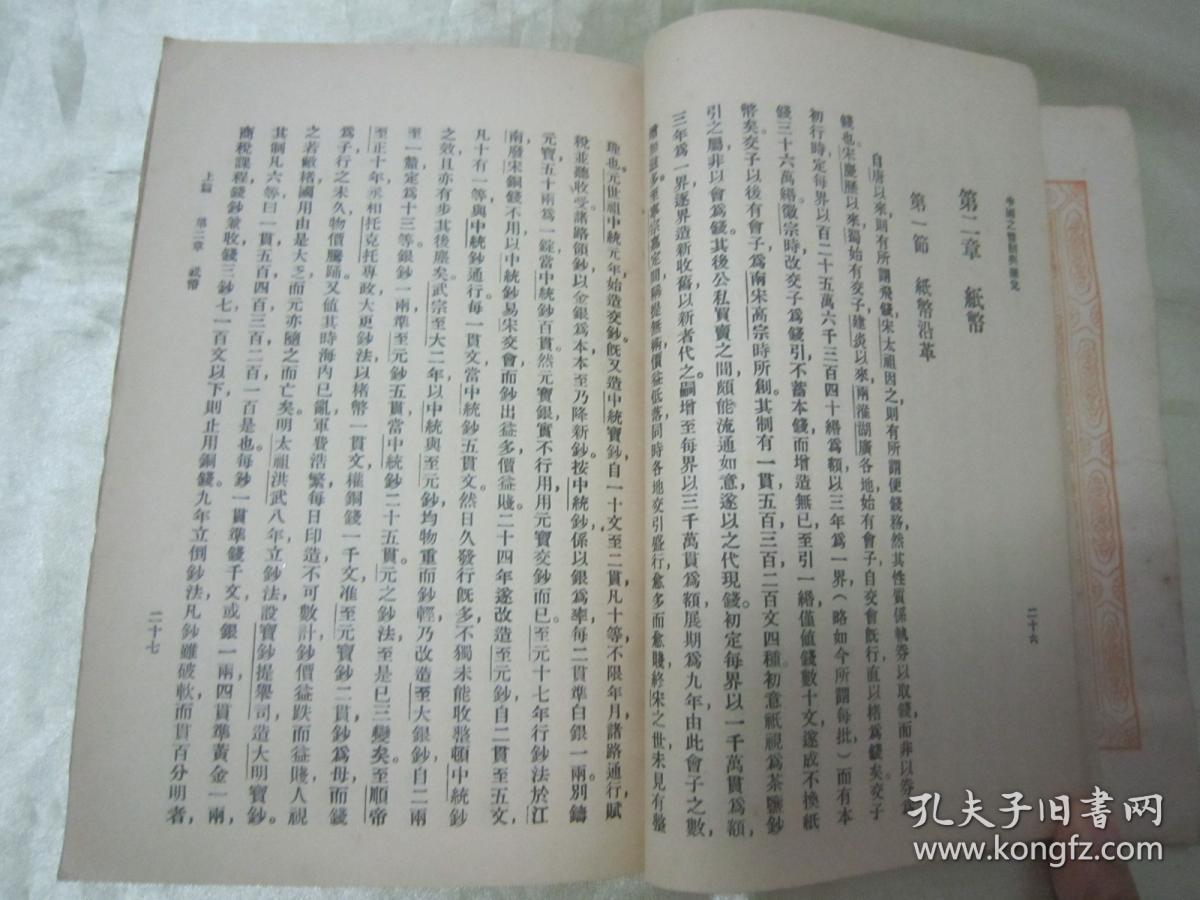 第二章　紙幣
第一節　紙幣沿革
自唐以來則有所謂飛錢宋太祖因之則有所謂便錢務然其性質係執券以取錢而非以券為
錢也。宋慶曆以來蜀始有交子建炎以來兩淮湖廣各地始有會子自交會既行直以楮為錢矣。交子
初行時定每界以百二十五萬六千三百四十緡為額以三年為一界（略如今所謂每批）而有本
錢三十六萬緡徽宗時改交子為錢引不蓄本錢而增造無已至引一緡僅值錢數十文遂或不換紙
幣矣。交子以後有會子為南宋高宗時所創。其制有一貫五百三百二百文四種初意祇視為茶鹽鈔
引之屬非以會為錢。其後公私買賣之間頗能流通如意遂以之代現錢。初定每界以一千萬貫為額，
三年為一界逐界造新收舊以新者代之。嗣增至每界以三千萬貫為額展期為九年由此會子之數
增加愈多。至寧宗嘉定間稱提無術價益低落同時各地交引盛行，愈多而愈賤終宋之世未見有整
二十六
理也。元世祖中統元年始造交鈔既又造中統寶鈔，自一十文至二貫凡十等不限年月諸路通行賦
稅並聽收受諸路領鈔以金銀為本本至乃降新鈔。按中統鈔係以銀為率每二貫準白銀一兩別鑄
元寶五十兩為一錠當中統鈔百貫然元寶銀實不行用用元寶交鈔而已。至元十七年行鈔法於江
南廢宋銅錢不用以中統鈔易宋交會而鈔出益多價益賤。二十四年遂改造至元鈔自二貫至五文，
凡十有一等與中統鈔通行。每一貫文當中統鈔五貫文。然日久發行既多不獨未能收整頓中統鈔
之效且亦有步其後塵矣。武宗至大二年以中統與至元鈔均物重而鈔輕乃改造至大銀鈔自二兩
至一釐定為十三等。銀鈔一兩準至元鈔五貫當中統鈔二十五貫。元之鈔法至是已三變矣。至順帝
至正十年丞相托克托專政大更鈔法以楮幣一貫文權銅錢一千文准至元寶鈔二貫鈔為母而錢
為子行之未久物價騰踊又值其時海內已亂軍費浩繁每日印造不可數計鈔價益跌而益賤人視
之若敝楮國用由是大乏而元亦隨之而亡矣。明太祖洪武八年立鈔法設寶鈔提舉司造大明寶鈔。
其制凡六等曰一貫五百四百三百二百一百是也。每鈔一貫準錢千文或銀一兩四貫準黃金一兩，
商稅課程錢鈔兼收錢三鈔七一百文以下則止用銅錢。九年立倒鈔法凡鈔雖破軟而貫百分明者，
上篇　第二章　紙幣
二十七
孔夫子旧書网
www.kongfz.com